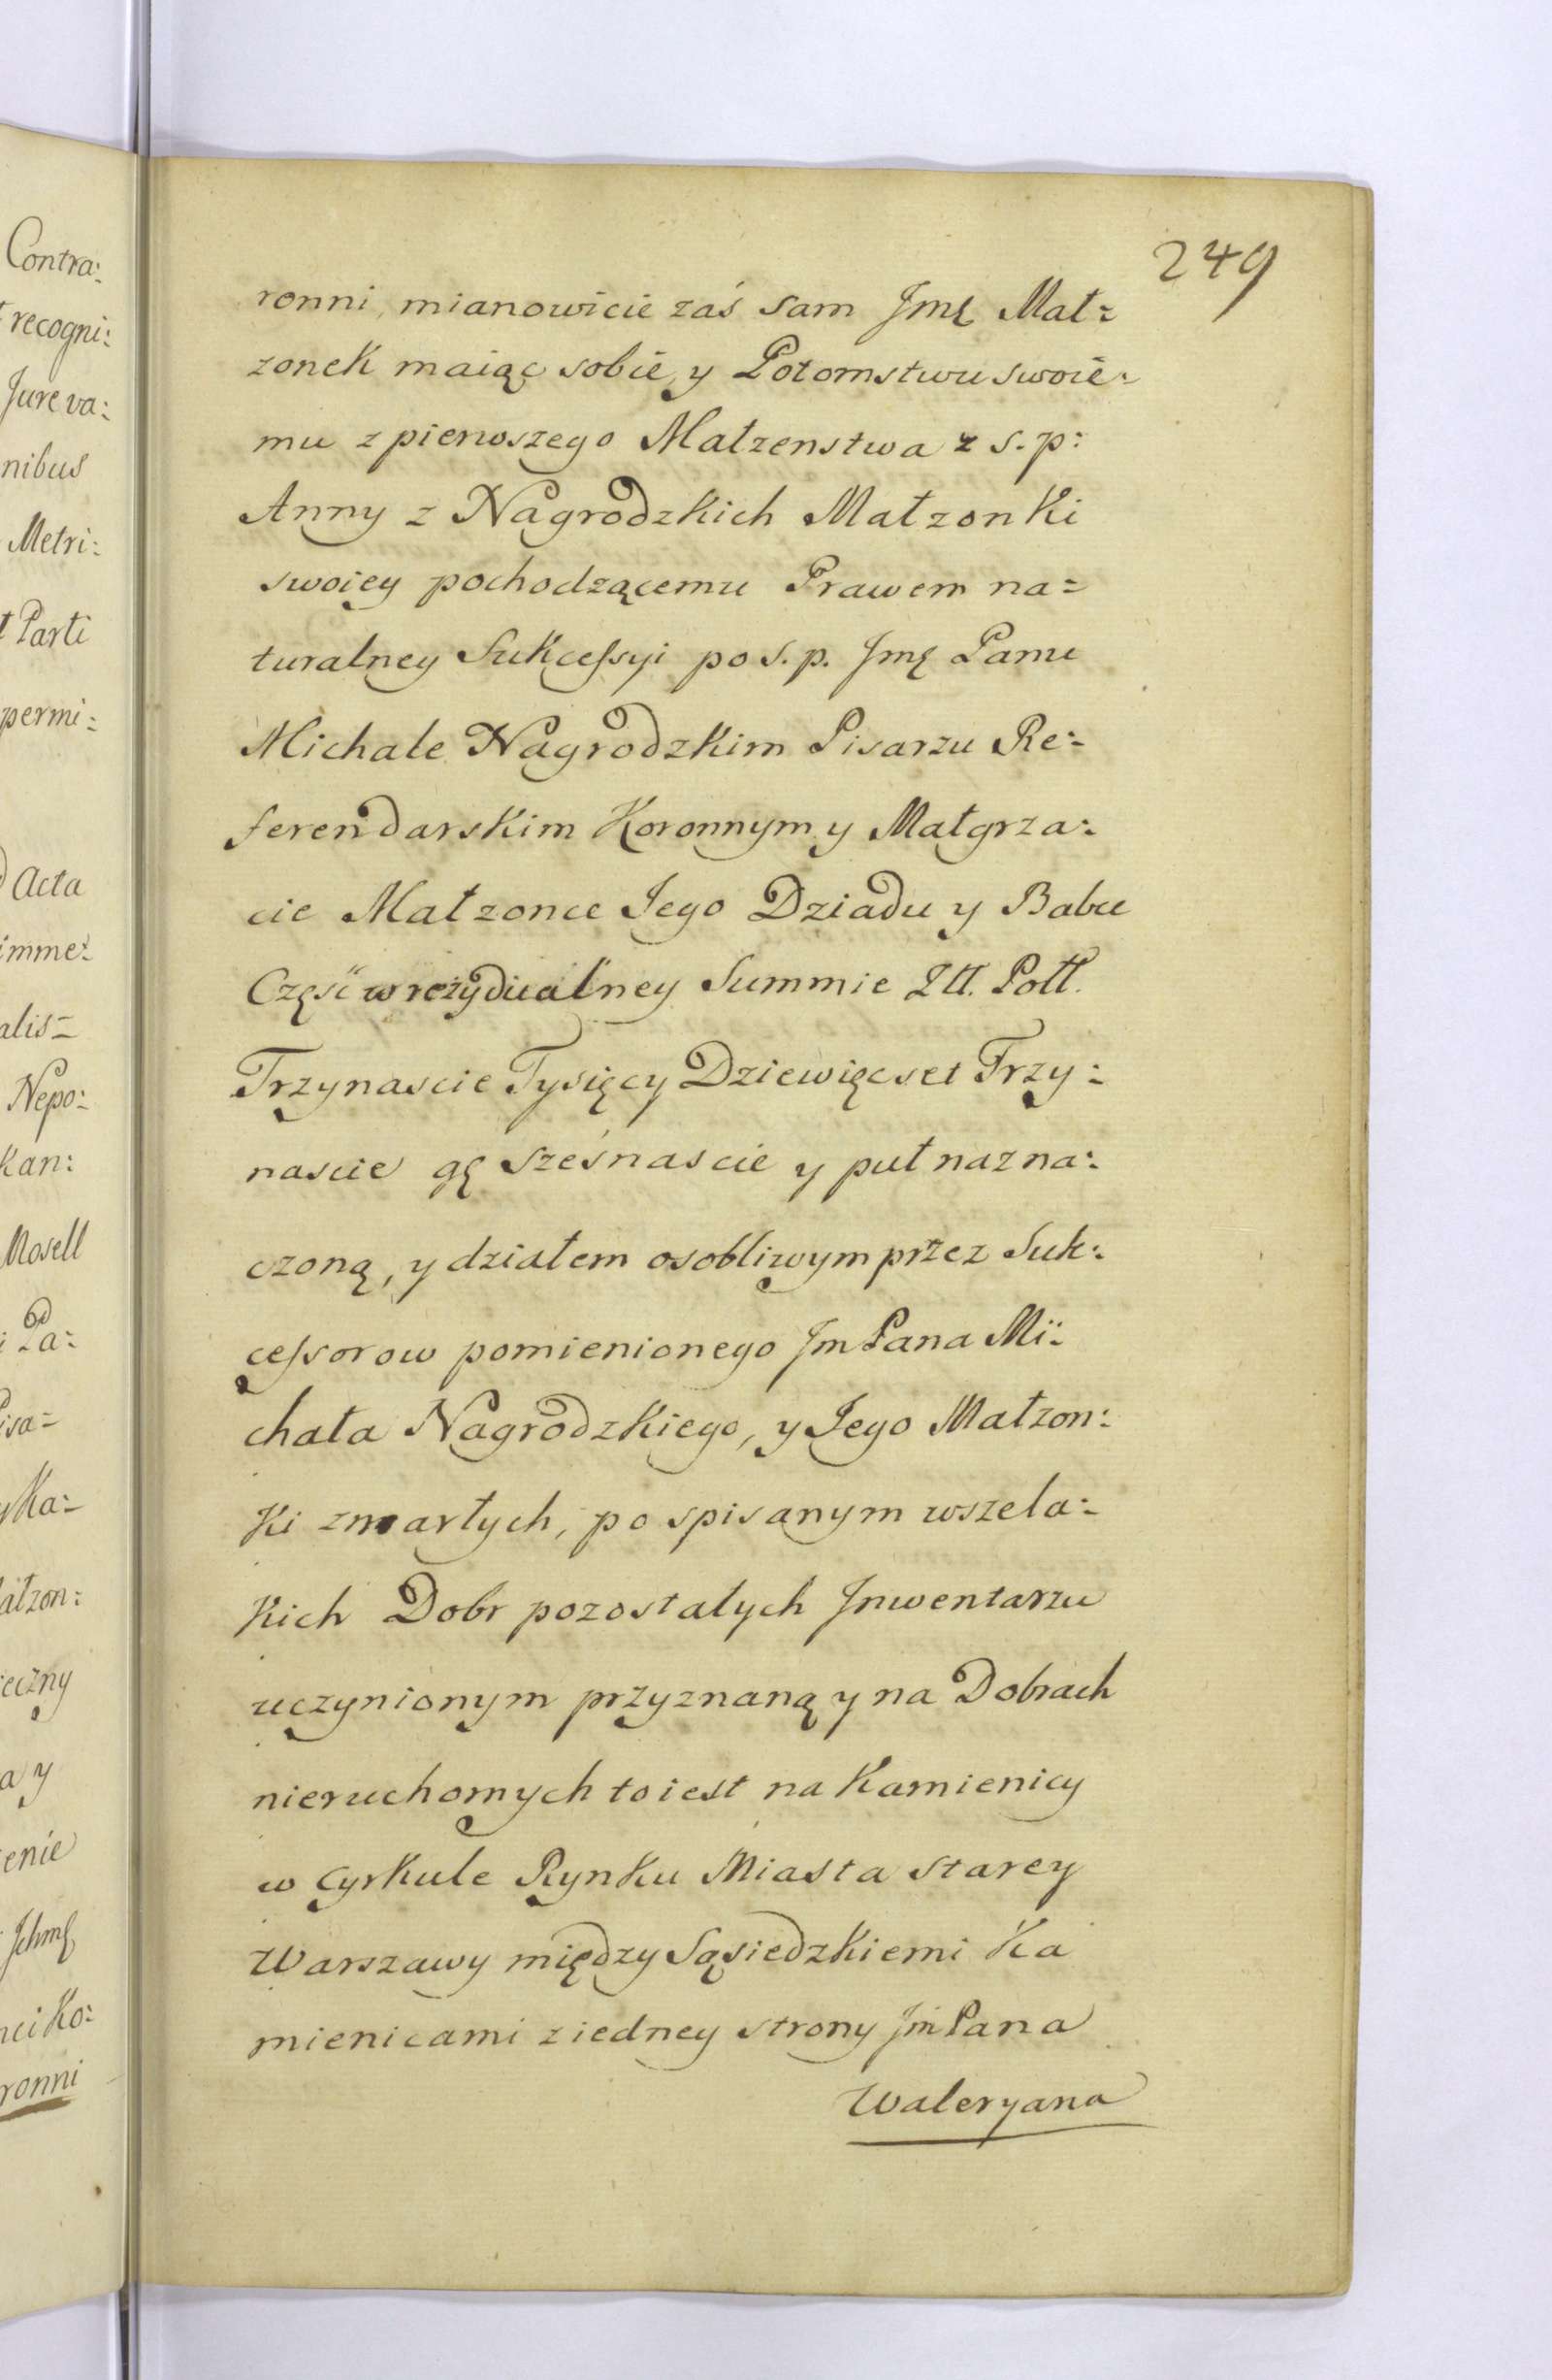 Contra:
recogni:
Jure va:
nibus
Metri:
Parti
permi:
Acta
imme:
alis=
Nepo:
kan:
Mosell
i Pa:
isa=
yKa:
atzon:
ieczny
a y
enie
Jchmę
nci Ko:
ronni
249
ronni, mianowicie zaś sam Jmę Mał=
zonek maiąc sobie y Potomstwu swoie:
mu z pierwszego Małzenstwa z s. p:
Anny z Nagrodzkich Małzonki
swoiey pochodzącemu Prawem na=
turalney Sukcessyi po s. p. Jmę Panu
Michale Nagrodzkim Pisarzu Re:
ferendarskim Koronnym y Małgrza:
cie Małzonce Jego Dziadu y Babce
Część w rezydualney Summie Ztt. Poltt.
Trzynascie Tysięcy Dziewięcset Trzy:
nascie gę szesnascie y puł nazna:
czoną, y działem osobliwym przez Suk:
cessorow pomienionego Jm Pana Mi:
chała Nagrodzkiego, y Jego Małzon:
ki zmarłych, po spisanym wszela:
kich Dobr pozostałych Jnwentarzu
uczynionym przyznaną y na Dobrach
nieruchomych to iest na Kamienicy
w Cyrkule Rynku Miasta Starey
Warszawy między Sąsiedzkiemi Ka
mienicami z iedney strony Jm Pana
Waleryana